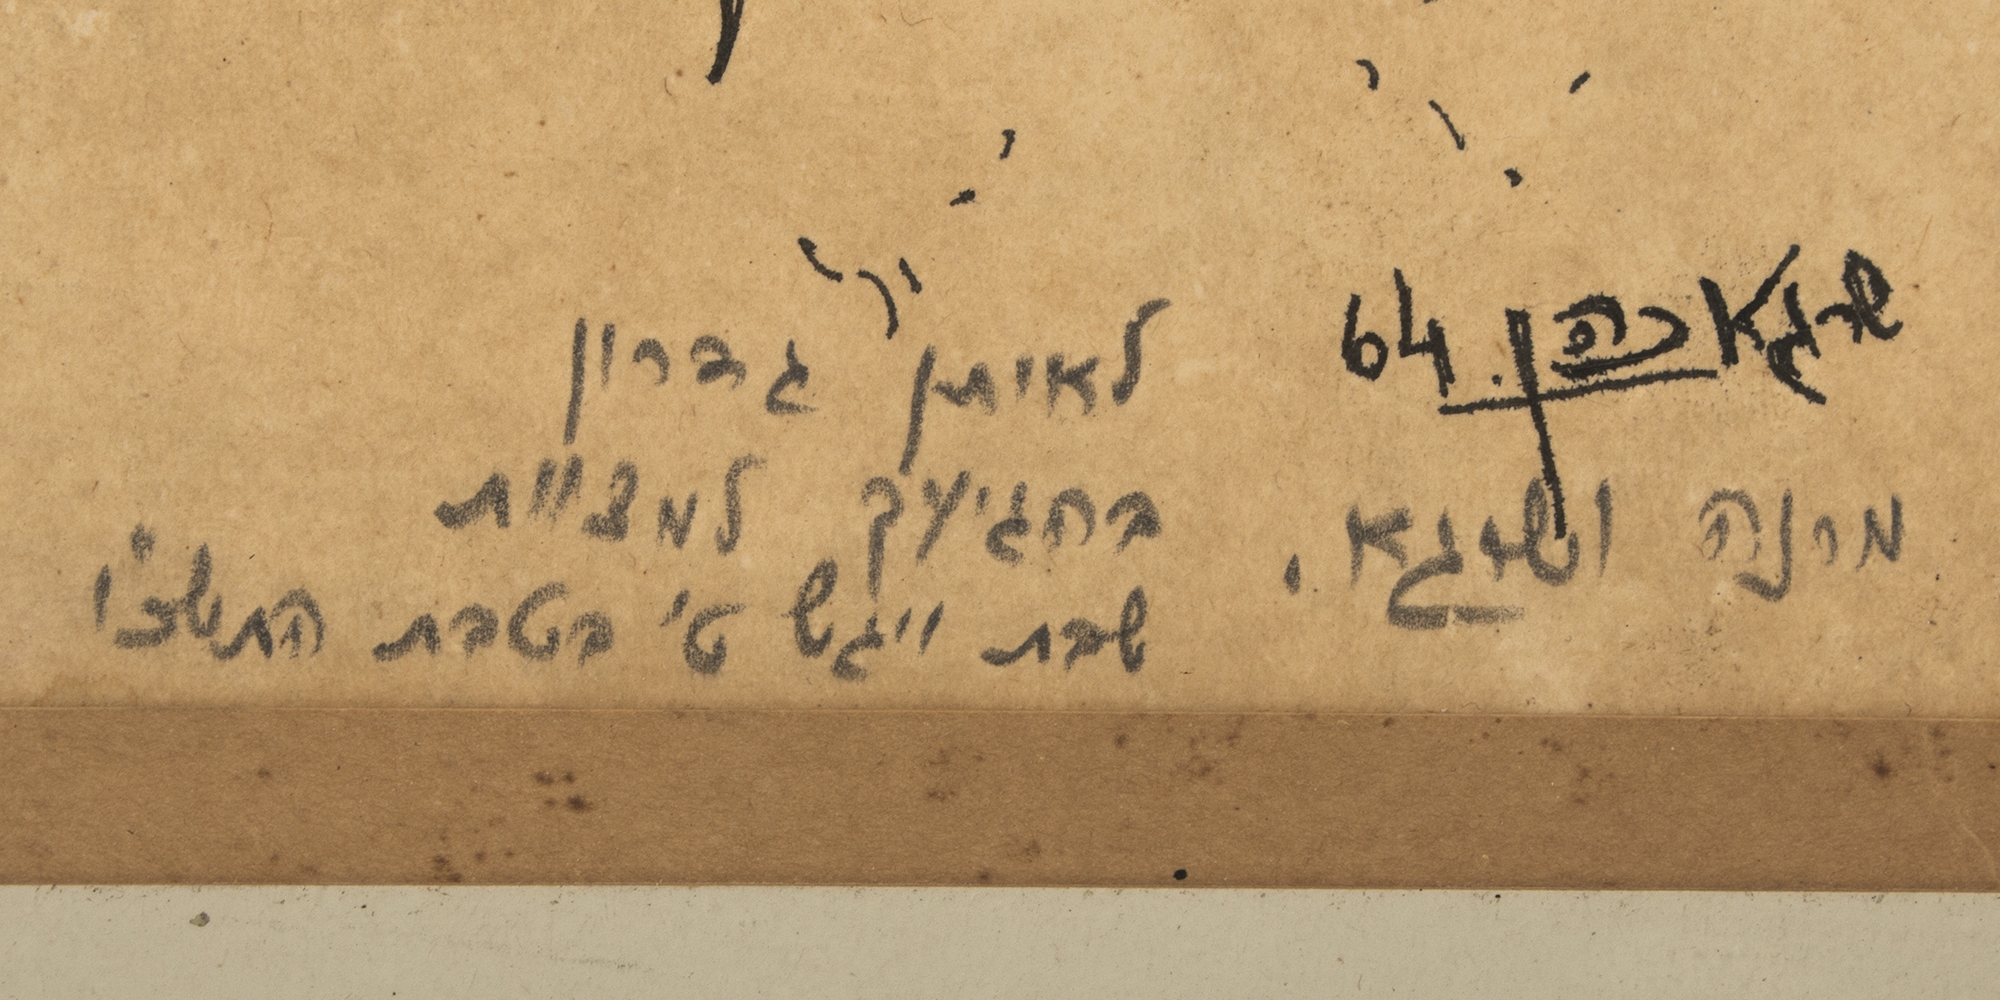 שרגא כהן. 64
לאיתן גברון
בהגיעך למצוות
שבת ויגש ט' בטבת התשכ"ו
מרנה ושרגא.